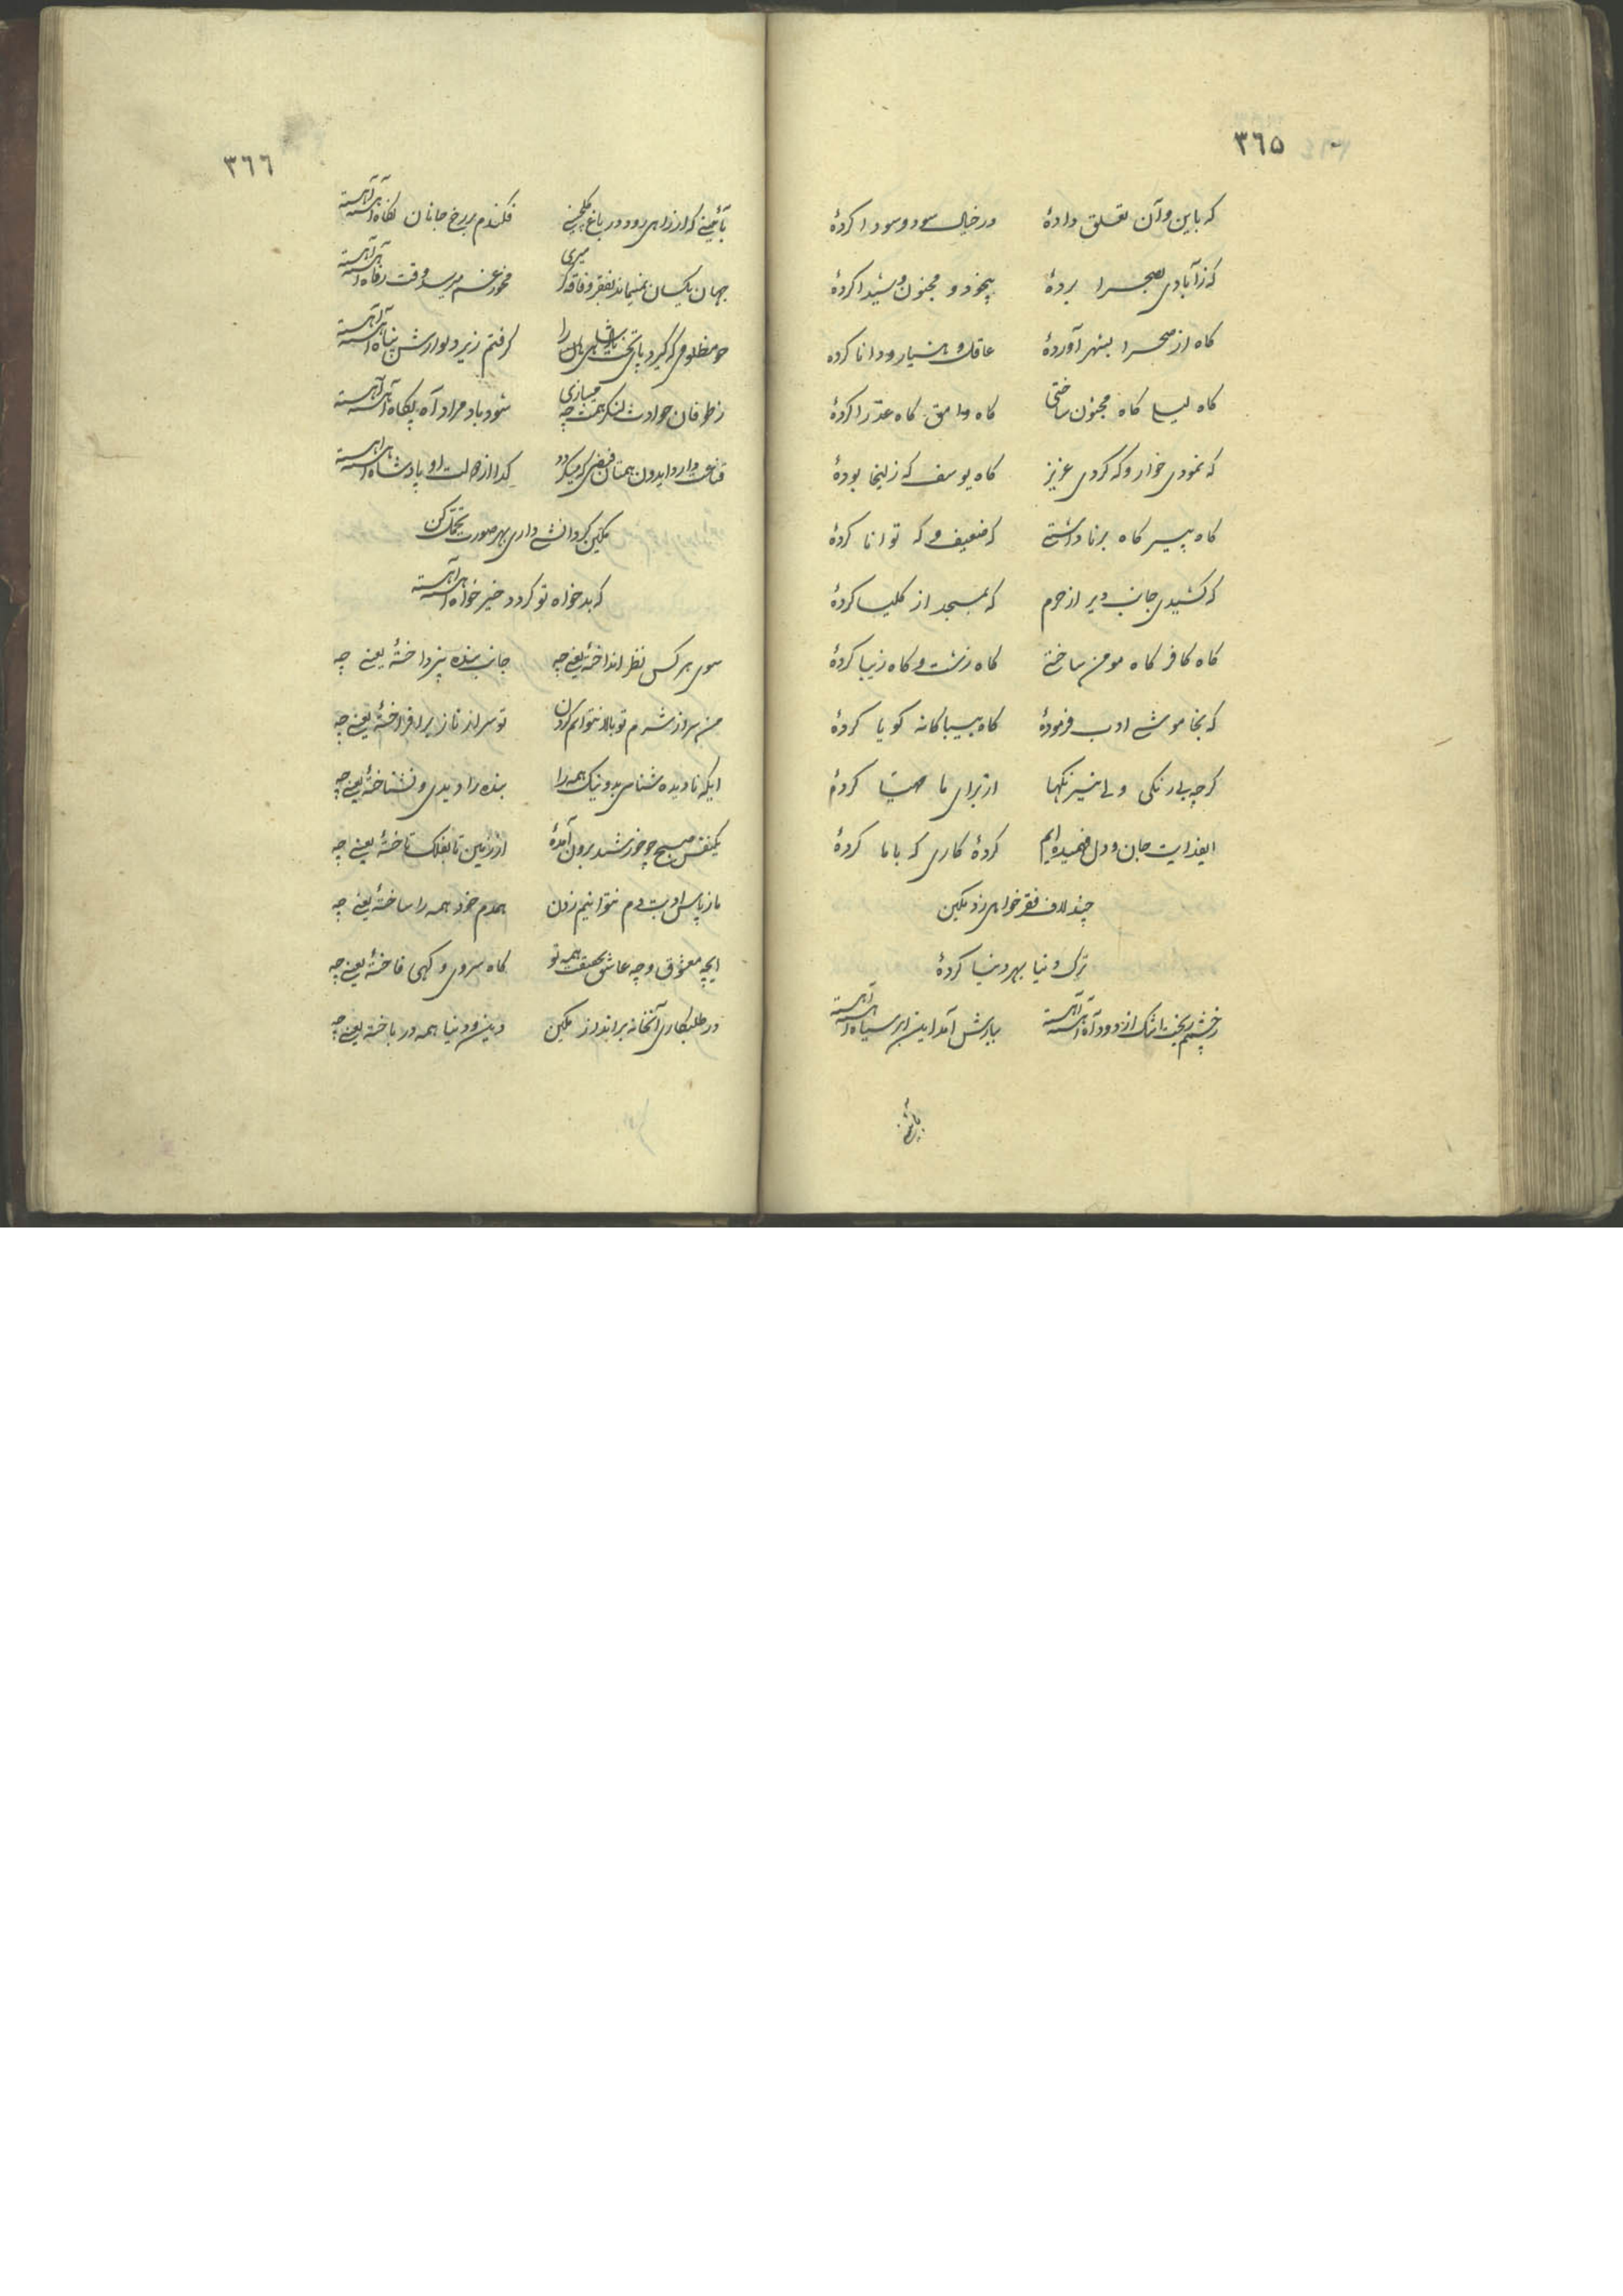 ٣٦٥
که باین و آن تعلق دادهٔ در خیال سود و سودا کردهٔ
که ز آبادی بصحرا بردهٔ بیخود و مجنون و شیدا کردهٔ
کاه از صحرا بشهر آوردهٔ عاقل و هشیار و دانا کردهٔ
کاه لیلی کاه مجنون ساختی کاه وامق کاه عذرا کردهٔ
که نمودی خوار و که کردی عزیز کاه یوسف که زلیخا بودهٔ
کاه پیر کاه برنا داشتی که ضعیف و که توانا کردهٔ
که کشیدی جانب دیر از حرم که بمسجد از کلیسا کردهٔ
کاه کافر کاه مومن ساختی کاه زشت و کاه زیبا کردهٔ
که بخاموشی ادب فرمودهٔ کاه بیباکانه کویا کردهٔ
کرچه بیرنکی ولی نیرنکها از برای ما مهیا کردهٔ
ایفدایت جان و دل فهمیده ایم کردهٔ کاری که با ما کردهٔ
چند لاف فقر خواهی زد مکین
ترک دنیا بهر دنیا کردهٔ
ز چشمم ریخت اشک از دود آه آهسته آهسته ببارش آمد این ابر سیاه آهسته آهسته
٣٦٦
بآئینی که از راهی رود در باغ کلچینی فکندم بر رخ جانان نکاه آهسته آهسته
جهان یکسان نمیماند بفقر و فاقه کر میری مخور غم میرسد وقت رفاه آهسته آهسته
چو مظلومی که کیرد پای تخت پادشاهی را کرفتم زیر دیوارش پناه آهسته آهسته
ز طوفان حوادث لنکر همت چه میبازی شود باد مراد آه پکاه آهسته آهسته
کدا از دولت او پادشاه آهسته آهسته
مکین کر دانشی داری بهر صورت تحمل کن
که بدخواه تو کردد خیرخواه آهسته آهسته
سوی هر کس نظر انداختهٔ یعنی چه جانب بنده نپرداختهٔ یعنی چه
من سر از شرم تو بالا نتوانم کردن تو سر از ناز برافراختهٔ یعنی چه
ایکه نادیده شناسی بد و نیک همه را بنده را دیدی و نشناختهٔ یعنی چه
یکنفس صبح چو خورشید برون آمدهٔ از زمین تا بفلک تاختهٔ یعنی چه
ما ز پاس ادبت دم نتوانیم زدن همدم خود همه را ساختهٔ یعنی چه
ایچه معشوق و چه عاشق بحقیقت همه تو کاه سروی و کهی فاختهٔ یعنی چه
در طلبکاری آنخانه برانداز مکین دین و دنیا همه در باختهٔ یعنی چه